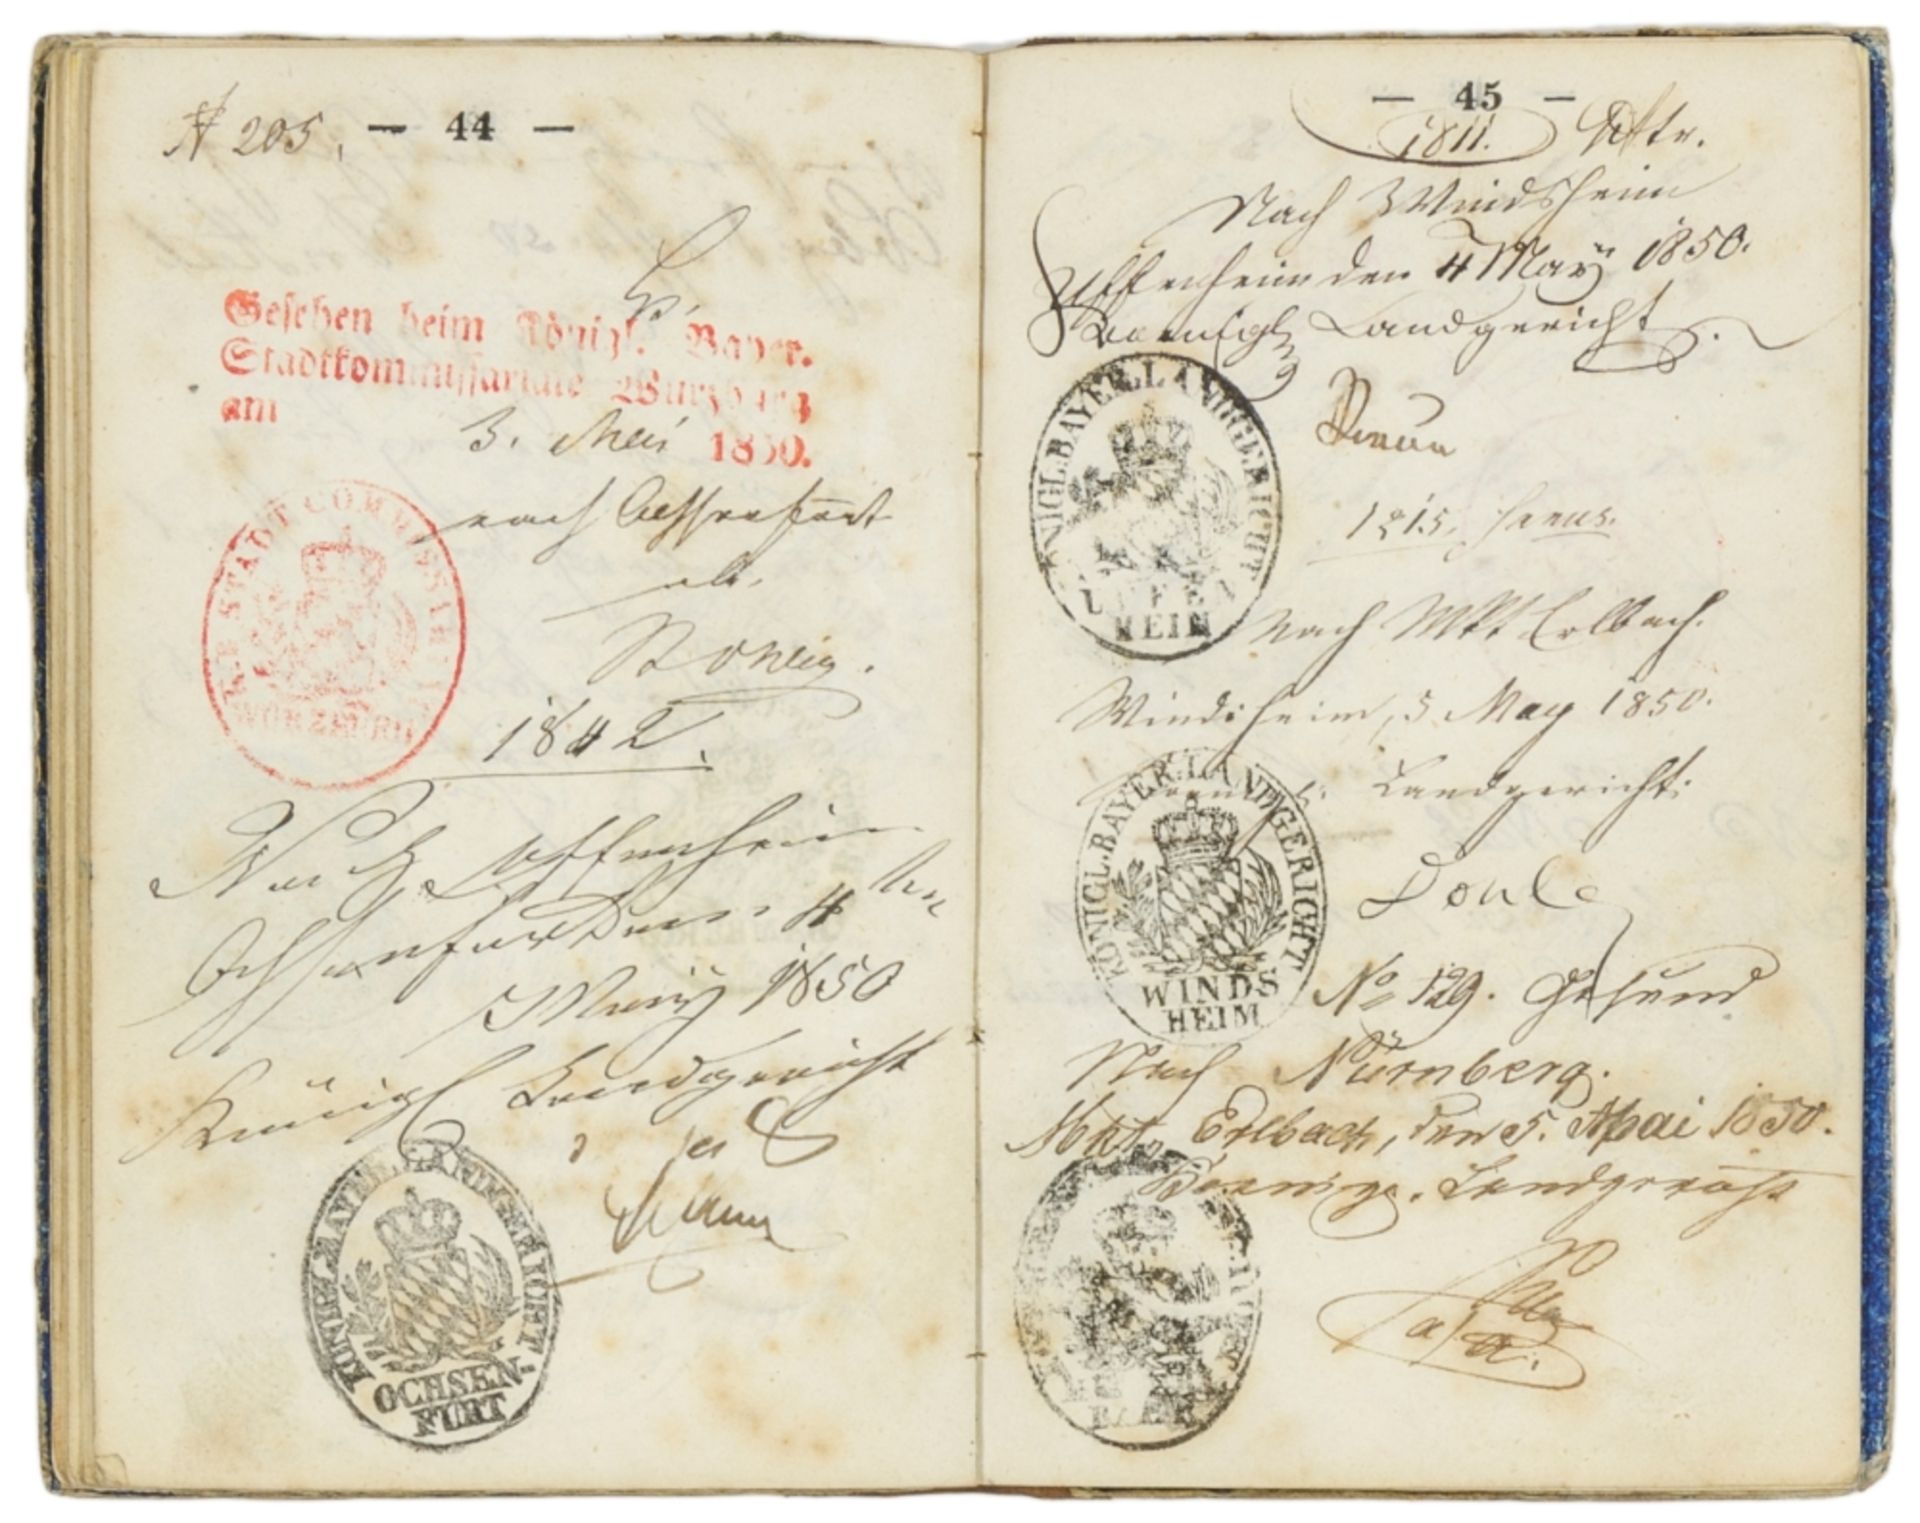 № 205. — 44 —
Gesehen beim Königl. Bayer.
Stadtkommissariate Würzburg
am
3. Mai 1850.
nach Ochsenfurt
STADT COMMISSARIAT
WÜRZBURG
1842.
Nach Uffenheim
Ochsenfurt den 4
May 1850
Königl Landgericht
KÖNIGL. BAYER. LANDGERICHT
OCHSEN-
FURT
— 45 —
1811.
Nach Windsheim
Uffenheim den 4 May 1850.
Koenigl Landgericht.
KÖNIGL. BAYER. LANDGERICHT
UFFEN
HEIM
1815.
Nach Mkt Erlbach.
Windsheim, 5 May 1850.
Landgericht:
KÖNIGL. BAYER. LANDGERICHT
WINDS
HEIM
No 129. Gesund
Nach Nürnberg.
Mkt. Erlbach, den 5. Mai 1850.
Koenigl. Landgericht